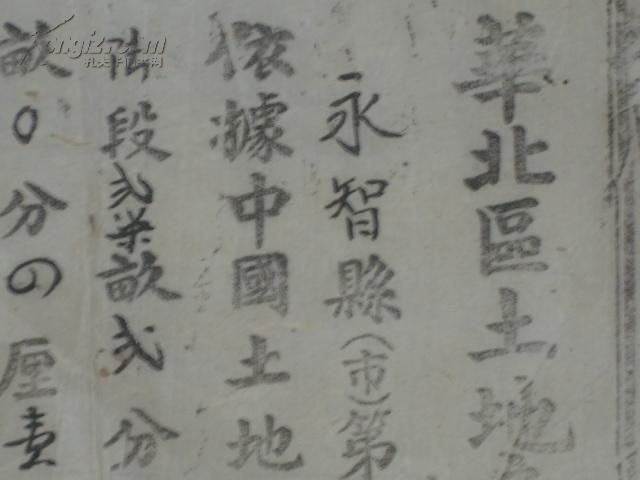 華北區土地
永智縣(市)第
依據中國土地
段弍畝弍分
畝0分の厘
Kongfz.com
孔夫子旧书网